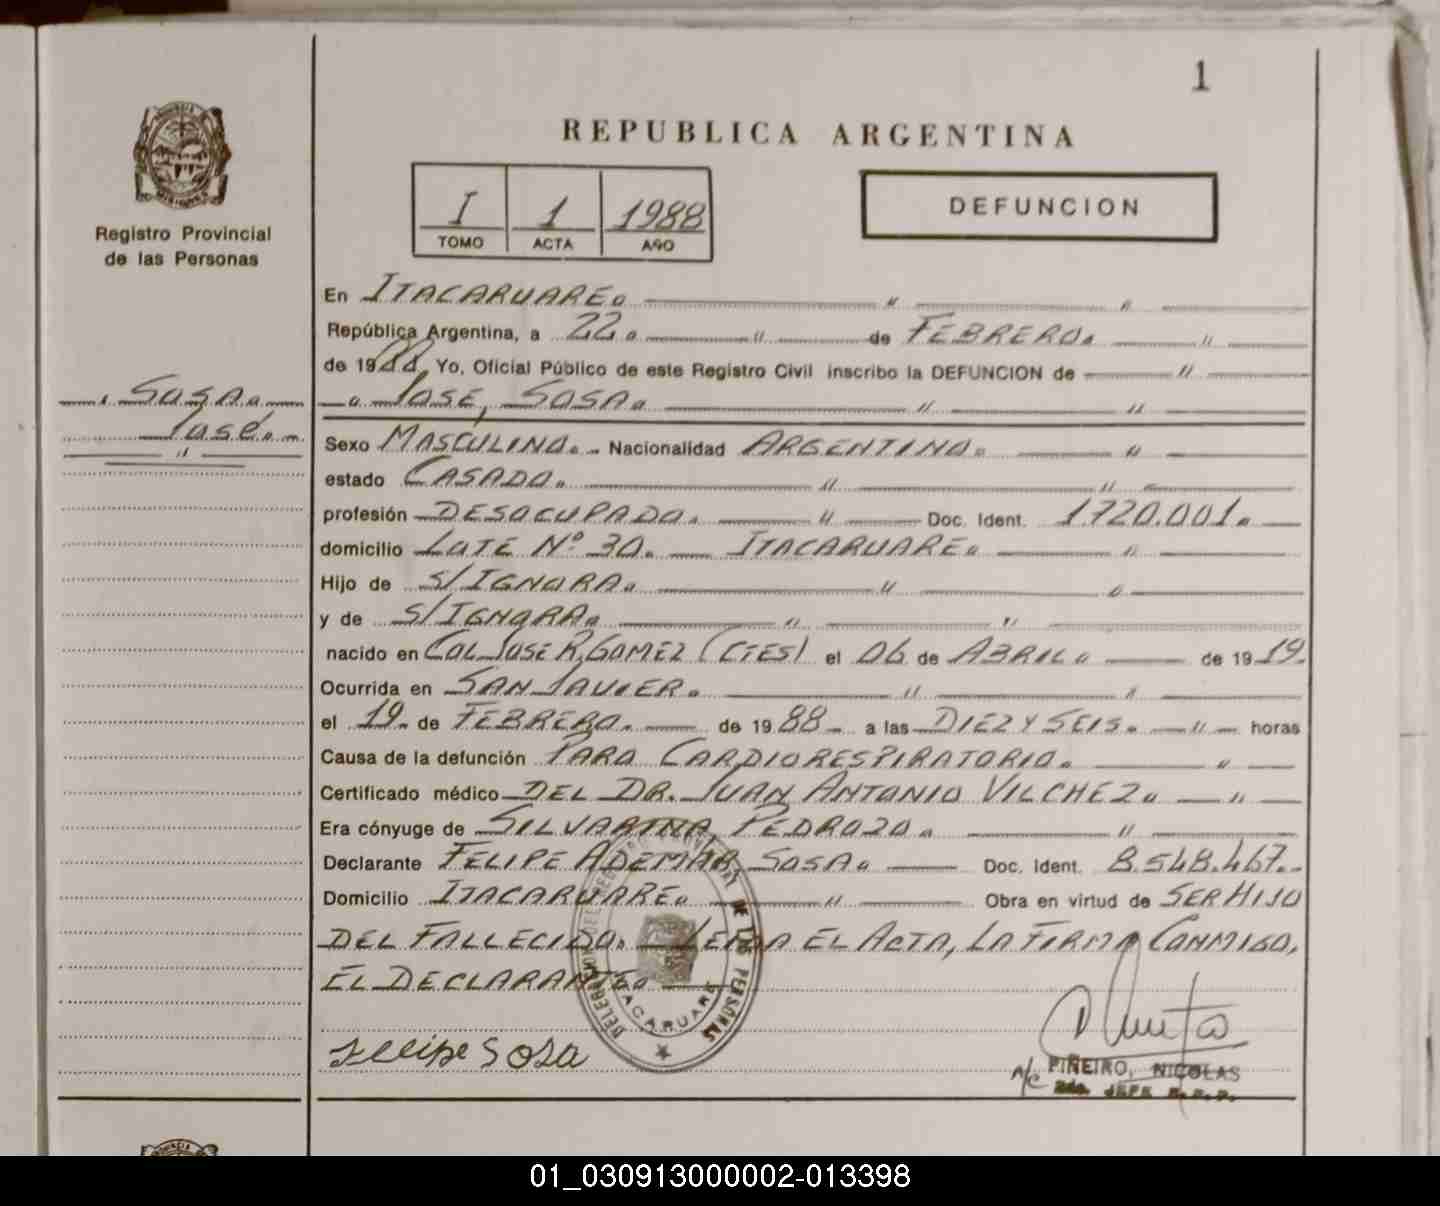 1
REPUBLICA ARGENTINA
I 1 1988
TOMO ACTA AÑO
DEFUNCION
Registro Provincial
de las Personas
Sosa.
José.
En ITACARUARE.
República Argentina, a 22. de FEBRERO.
de 1988. Yo, Oficial Público de este Registro Civil inscribo la DEFUNCION de
JOSE, SOSA.
Sexo MASCULINO. Nacionalidad ARGENTINO.
estado CASADO.
profesión DESOCUPADO. Doc. Ident. 1.720.001.
domicilio LOTE Nº 30. ITACARUARE.
Hijo de S/ IGNORA.
y de S/ IGNORA.
nacido en COL JOSE R. GOMEZ (CTES) el 06 de ABRIL. de 1919.
Ocurrida en SAN JAVIER.
el 19 de FEBRERO. de 1988 a las DIEZ Y SEIS. horas
Causa de la defunción PARO CARDIORESPIRATORIO.
Certificado médico DEL DR. JUAN ANTONIO VILCHEZ.
Era cónyuge de SILVARINA PEDROZO.
Declarante FELIPE ADEMAR SOSA. Doc. Ident. 8.548.467.
Domicilio ITACARUARE. Obra en virtud de SER HIJO
DEL FALLECIDO. LEIDA EL ACTA, LA FIRMA CONMIGO,
EL DECLARANTE.
DE LAS PERSONAS
ITACARUARE
Felipe Sosa
A/C PIÑEIRO, NICOLAS
2do. JEFE R.P.P.
01_030913000002-013398